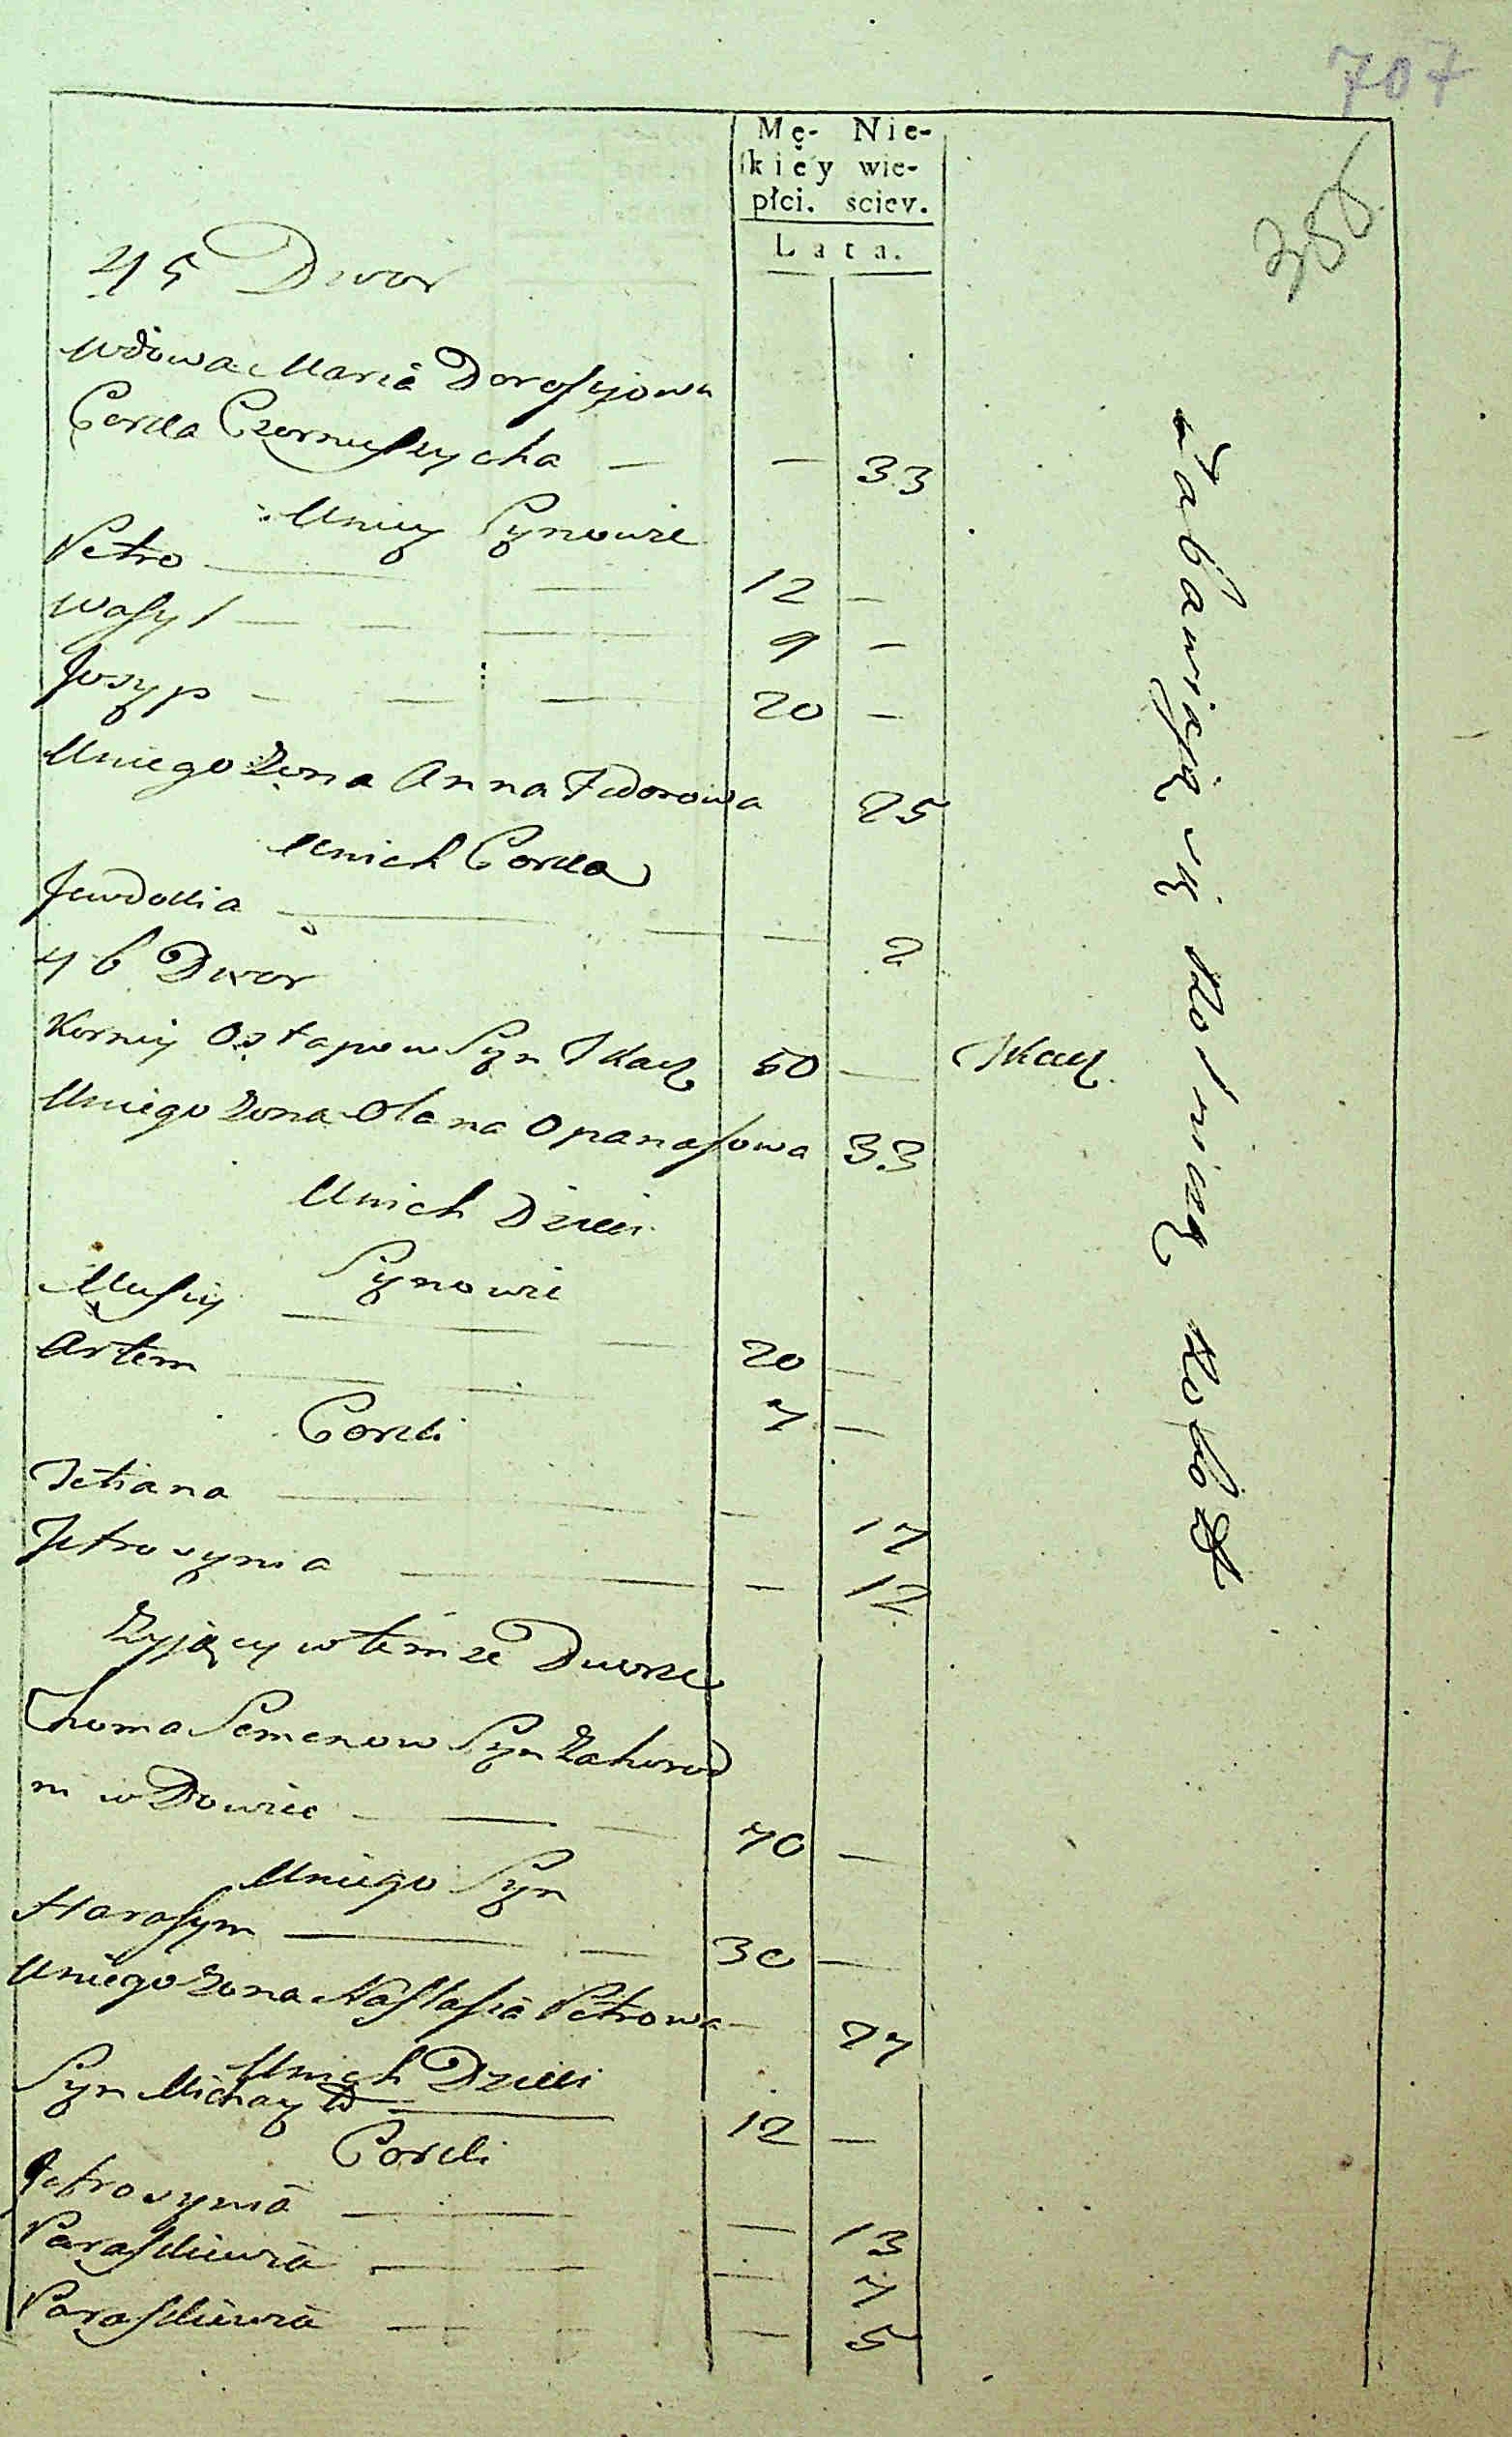 707
386
Mę- Nie-
skiey wie-
płci. sciey.
Lata.
45 Dwor
Wdowa Maria Dorosyiowa
Corka Czernyszycha — — 33
U niey Synowie
Petro — — 12 —
Wasyl — — — 9 —
Josyp — — — 20 —
U niego Zona Anna Fedorowa 25
U nich Corka
Jewdokia — — — 2
46 Dwor
Korniy Ostapow Syn Tkacz 50 — Tkacz
U niego Zona Olana Opanasowa 33
U nich Dzieci
Synowie
Musiy — — 20 —
Artem — — 7 —
Corki
Tetiana — — 17
Jefrosynia — — 12
Zyjący w temze Dworze
Choma Semenow Syn Zahorod
ni wdowiec — — 70 —
U niego Syn
Harasym — — 30 —
U niego Zona Nastasia Petrowa — 27
U nich Dzieci
Syn Michayło — 12 —
Corki
Jefrosynia — — 13
Paraskiewia — — 7
Paraskiewia — — — 5
Zabawiaią się Rolniczą Robotą